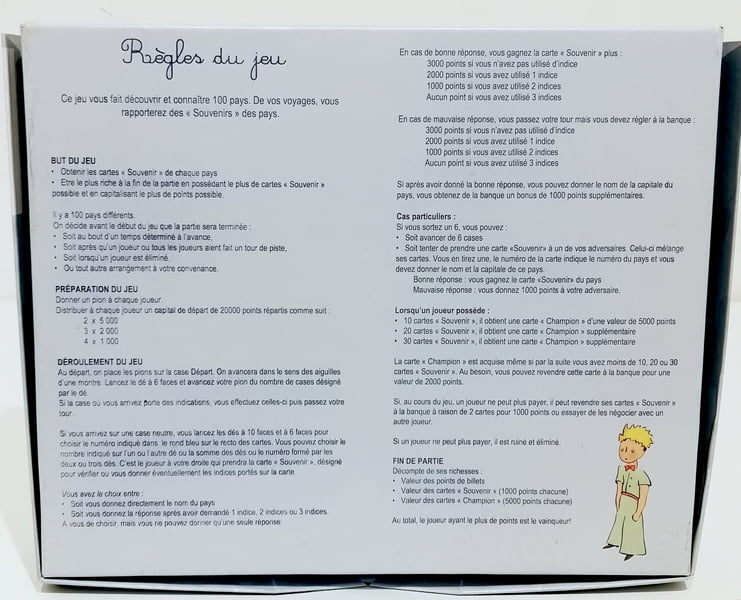 Règles du jeu
Ce jeu vous fait découvrir et connaître 100 pays. De vos voyages, vous
rapporterez des « Souvenirs » des pays.
BUT DU JEU
• Obtenir les cartes « Souvenir » de chaque pays
• Etre le plus riche à la fin de la partie en possédant le plus de cartes « Souvenir »
possible et en capitalisant le plus de points possible.
Il y a 100 pays différents.
On décide avant le début du jeu que la partie sera terminée :
• Soit au bout d'un temps déterminé à l'avance,
• Soit après qu'un joueur ou tous les joueurs aient fait un tour de piste,
• Soit lorsqu'un joueur est éliminé,
• Ou tout autre arrangement à votre convenance.
PRÉPARATION DU JEU
Donner un pion à chaque joueur.
Distribuer à chaque joueur un capital de départ de 20000 points répartis comme suit :
2 x 5 000
3 x 2 000
4 x 1 000
DÉROULEMENT DU JEU
Au départ, on place les pions sur la case Départ. On avancera dans le sens des aiguilles
d'une montre. Lancez le dé à 6 faces et avancez votre pion du nombre de cases désigné
par le dé.
Si la case où vous arrivez porte des indications, vous effectuez celles-ci puis passez votre
tour.
Si vous arrivez sur une case neutre, vous lancez les dés à 10 faces et à 6 faces pour
choisir le numéro indiqué dans le rond bleu sur le recto des cartes. Vous pouvez choisir le
nombre indiqué sur l'un ou l'autre dé ou la somme des dés ou le numéro formé par les
deux ou trois dés. C'est le joueur à votre droite qui prendra la carte « Souvenir », désigné
pour vérifier ou vous donner éventuellement les indices portés sur la carte.
Vous avez le choix entre :
• Soit vous donnez directement le nom du pays
• Soit vous donnez la réponse après avoir demandé 1 indice, 2 indices ou 3 indices.
A vous de choisir, mais vous ne pouvez donner qu'une seule réponse.
En cas de bonne réponse, vous gagnez la carte « Souvenir » plus :
3000 points si vous n'avez pas utilisé d'indice
2000 points si vous avez utilisé 1 indice
1000 points si vous avez utilisé 2 indices
Aucun point si vous avez utilisé 3 indices
En cas de mauvaise réponse, vous passez votre tour mais vous devez régler à la banque :
3000 points si vous n'avez pas utilisé d'indice
2000 points si vous avez utilisé 1 indice
1000 points si vous avez utilisé 2 indices
Aucun point si vous avez utilisé 3 indices
Si après avoir donné la bonne réponse, vous pouvez donner le nom de la capitale du
pays, vous obtenez de la banque un bonus de 1000 points supplémentaires.
Cas particuliers :
Si vous sortez un 6, vous pouvez :
• Soit avancer de 6 cases
• Soit tenter de prendre une carte «Souvenir» à un de vos adversaires. Celui-ci mélange
ses cartes. Vous en tirez une, le numéro de la carte indique le numéro du pays et vous
devez donner le nom et la capitale de ce pays.
Bonne réponse : vous gagnez la carte «Souvenir» du pays
Mauvaise réponse : vous donnez 1000 points à votre adversaire.
Lorsqu'un joueur possède :
• 10 cartes « Souvenir », il obtient une carte « Champion » d'une valeur de 5000 points
• 20 cartes « Souvenir », il obtient une carte « Champion » supplémentaire
• 30 cartes « Souvenir », il obtient une carte « Champion » supplémentaire
La carte « Champion » est acquise même si par la suite vous avez moins de 10, 20 ou 30
cartes « Souvenir ». Au besoin, vous pouvez revendre cette carte à la banque pour une
valeur de 2000 points.
Si, au cours du jeu, un joueur ne peut plus payer, il peut revendre ses cartes « Souvenir »
à la banque à raison de 2 cartes pour 1000 points ou essayer de les négocier avec un
autre joueur.
Si un joueur ne peut plus payer, il est ruiné et éliminé.
FIN DE PARTIE
Décompte de ses richesses :
• Valeur des points de billets
• Valeur des cartes « Souvenir » (1000 points chacune)
• Valeur des cartes « Champion » (5000 points chacune)
Au total, le joueur ayant le plus de points est le vainqueur!